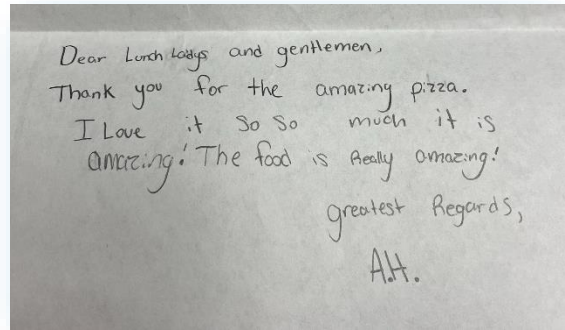 Dear Lunch Ladys and gentlemen,
Thank you for the amazing pizza.
I Love it So So much it is
amazing! The food is Really amazing!
greatest Regards,
A.H.